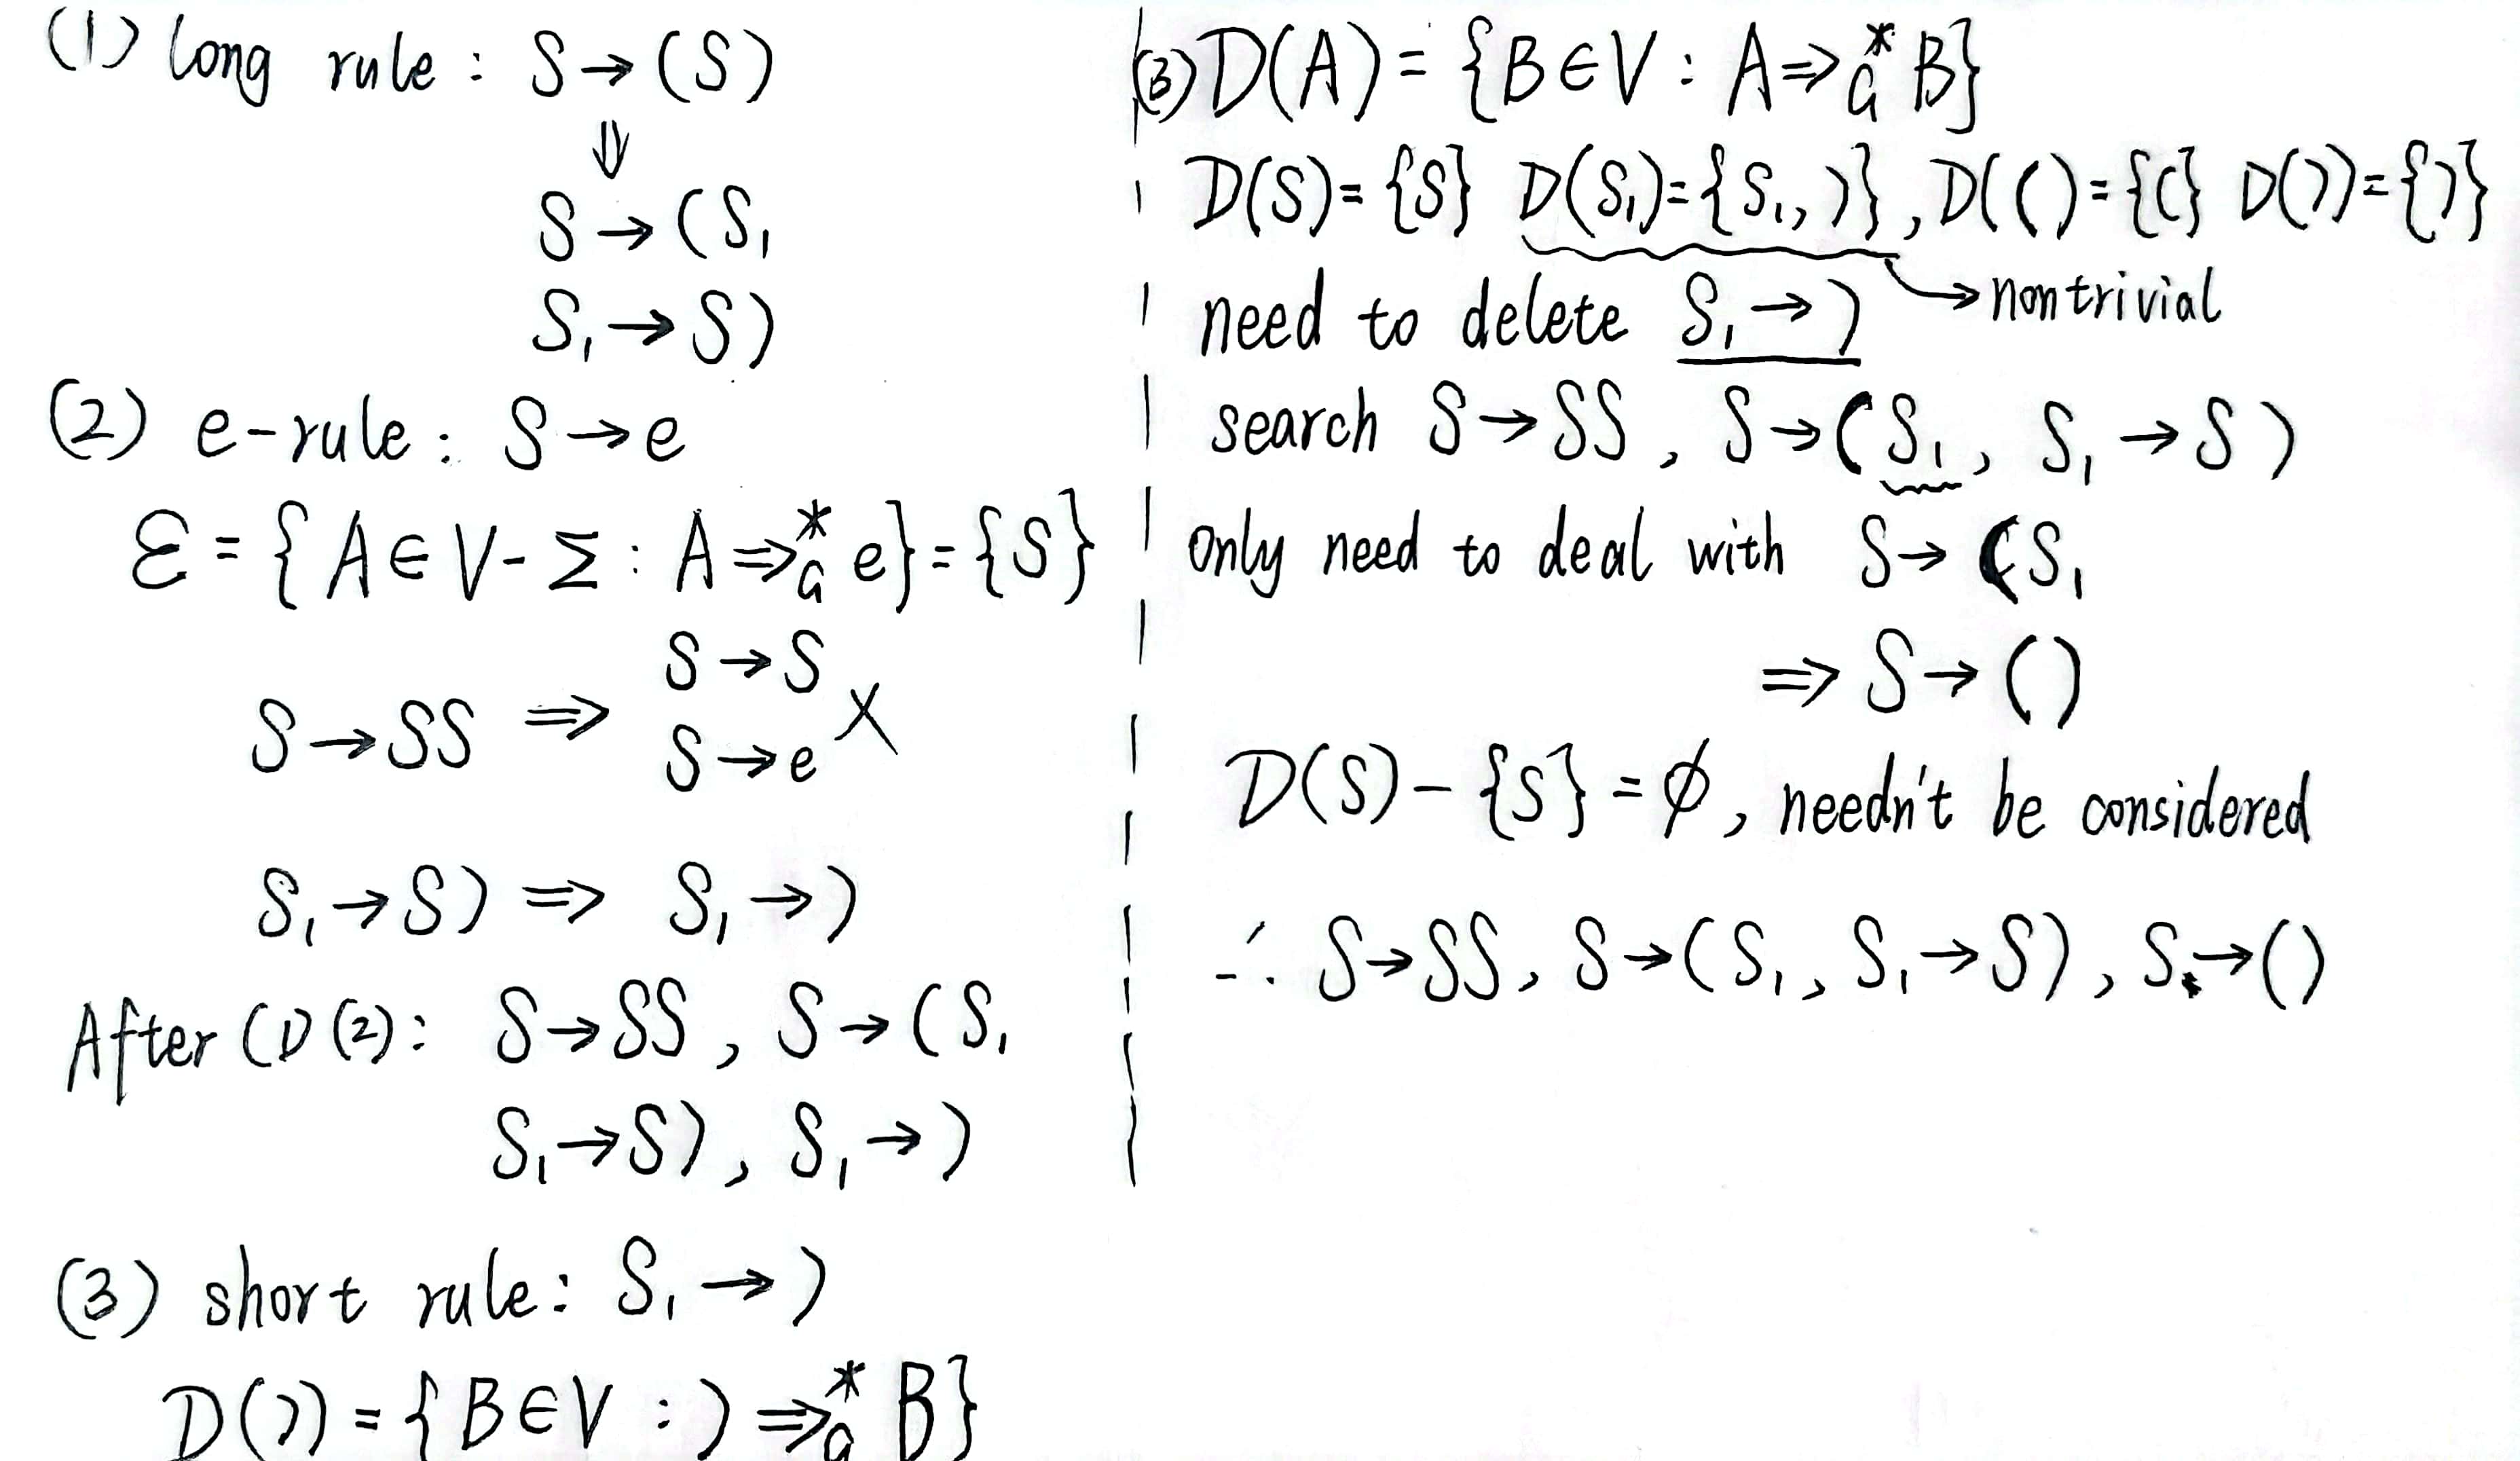 (1) long rule : S → (S)
⇓
S → (S₁
S₁ → S)
(2) e-rule : S → e
ℰ = { A ∈ V - Σ : A ⇒*G e} = {S}
S → SS ⇒ S → S
S → e ×
S₁ → S) ⇒ S₁ → )
After (1) (2) : S → SS , S → (S₁
S₁ → S) , S₁ → )
(3) short rule : S₁ → )
D()) = { B ∈ V : ) ⇒*G B}
(3) D(A) = {B ∈ V : A ⇒*G B}
D(S) = {S} D(S₁) = {S₁, )} , D(() = {(} D()) = {)}
→ nontrivial
need to delete S₁ → )
search S → SS , S → (S₁ , S₁ → S)
only need to deal with S → (S₁
⇒ S → ()
D(S) - {S} = ϕ , needn't be considered
∴ S → SS , S → (S₁ , S₁ → S) , S → ()